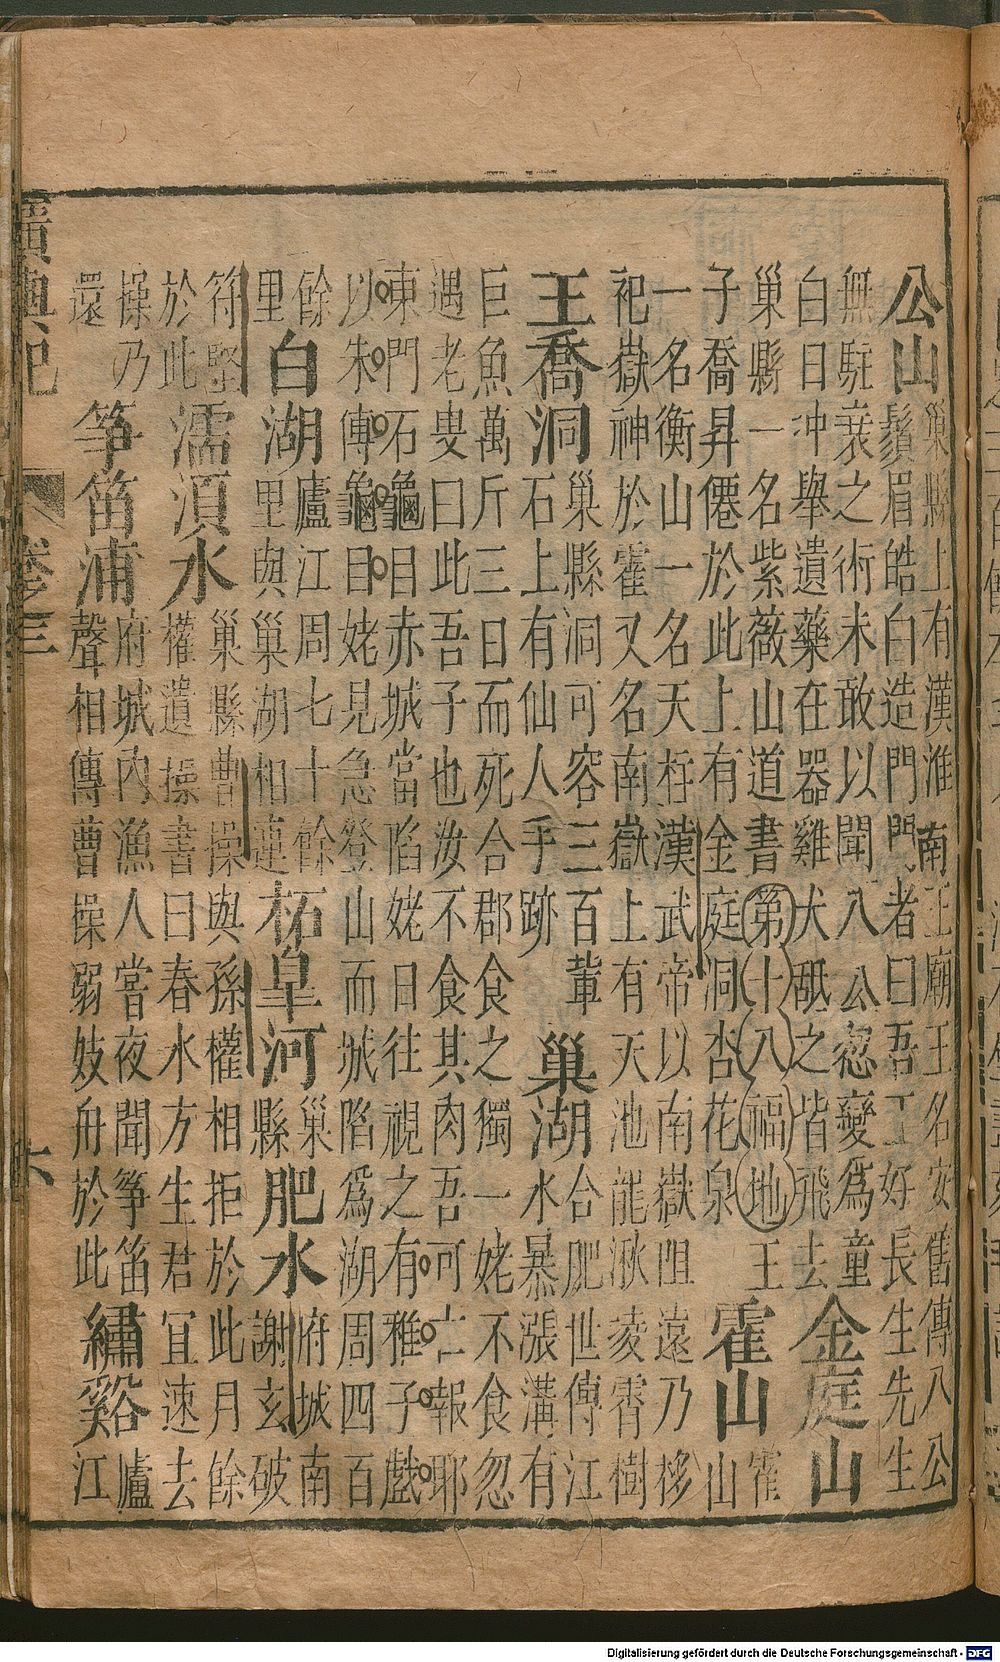 公山
巢縣上有漢淮南王廟王名安舊傳八公
鬚眉皓白造門門者曰吾王好長生先生
無駐衰之術未敢以聞八公忽變爲童
白日沖舉遺藥在器雞犬舐之皆飛去
金庭山
巢縣一名紫薇山道書第十八福地王
子喬昇僊於此上有金庭洞杏花泉
霍山
霍
山
一名衡山一名天柱漢武帝以南嶽阻遠乃移
祀嶽神於霍又名南嶽上有天池龍湫凌霄樹
王喬洞
巢縣洞可容三百輩
石上有仙人手跡
巢湖
合肥世傳江
水暴漲溝有
巨魚萬斤三日而死合郡食之獨一姥不食忽
遇老叟曰此吾子也汝不食其肉吾可亡報耶
東門石龜目赤城當陷姥日往視之有稚子戲
以朱傅龜目姥見急登山而城陷爲湖周四百
餘
里
白湖
廬江周七十餘
里與巢湖相連
柘皋河
巢
縣
肥水
府城南
謝玄破
符堅
於此
濡須水
巢縣曹操與孫權相拒於此月餘
權遺操書曰春水方生君冝速去
操乃
還
箏笛浦
府城內漁人嘗夜聞箏笛
聲相傳曹操溺妓舟於此
繡谿
廬
江
廣輿記
卷三
六
Digitalisierung gefördert durch die Deutsche Forschungsgemeinschaft - DFG